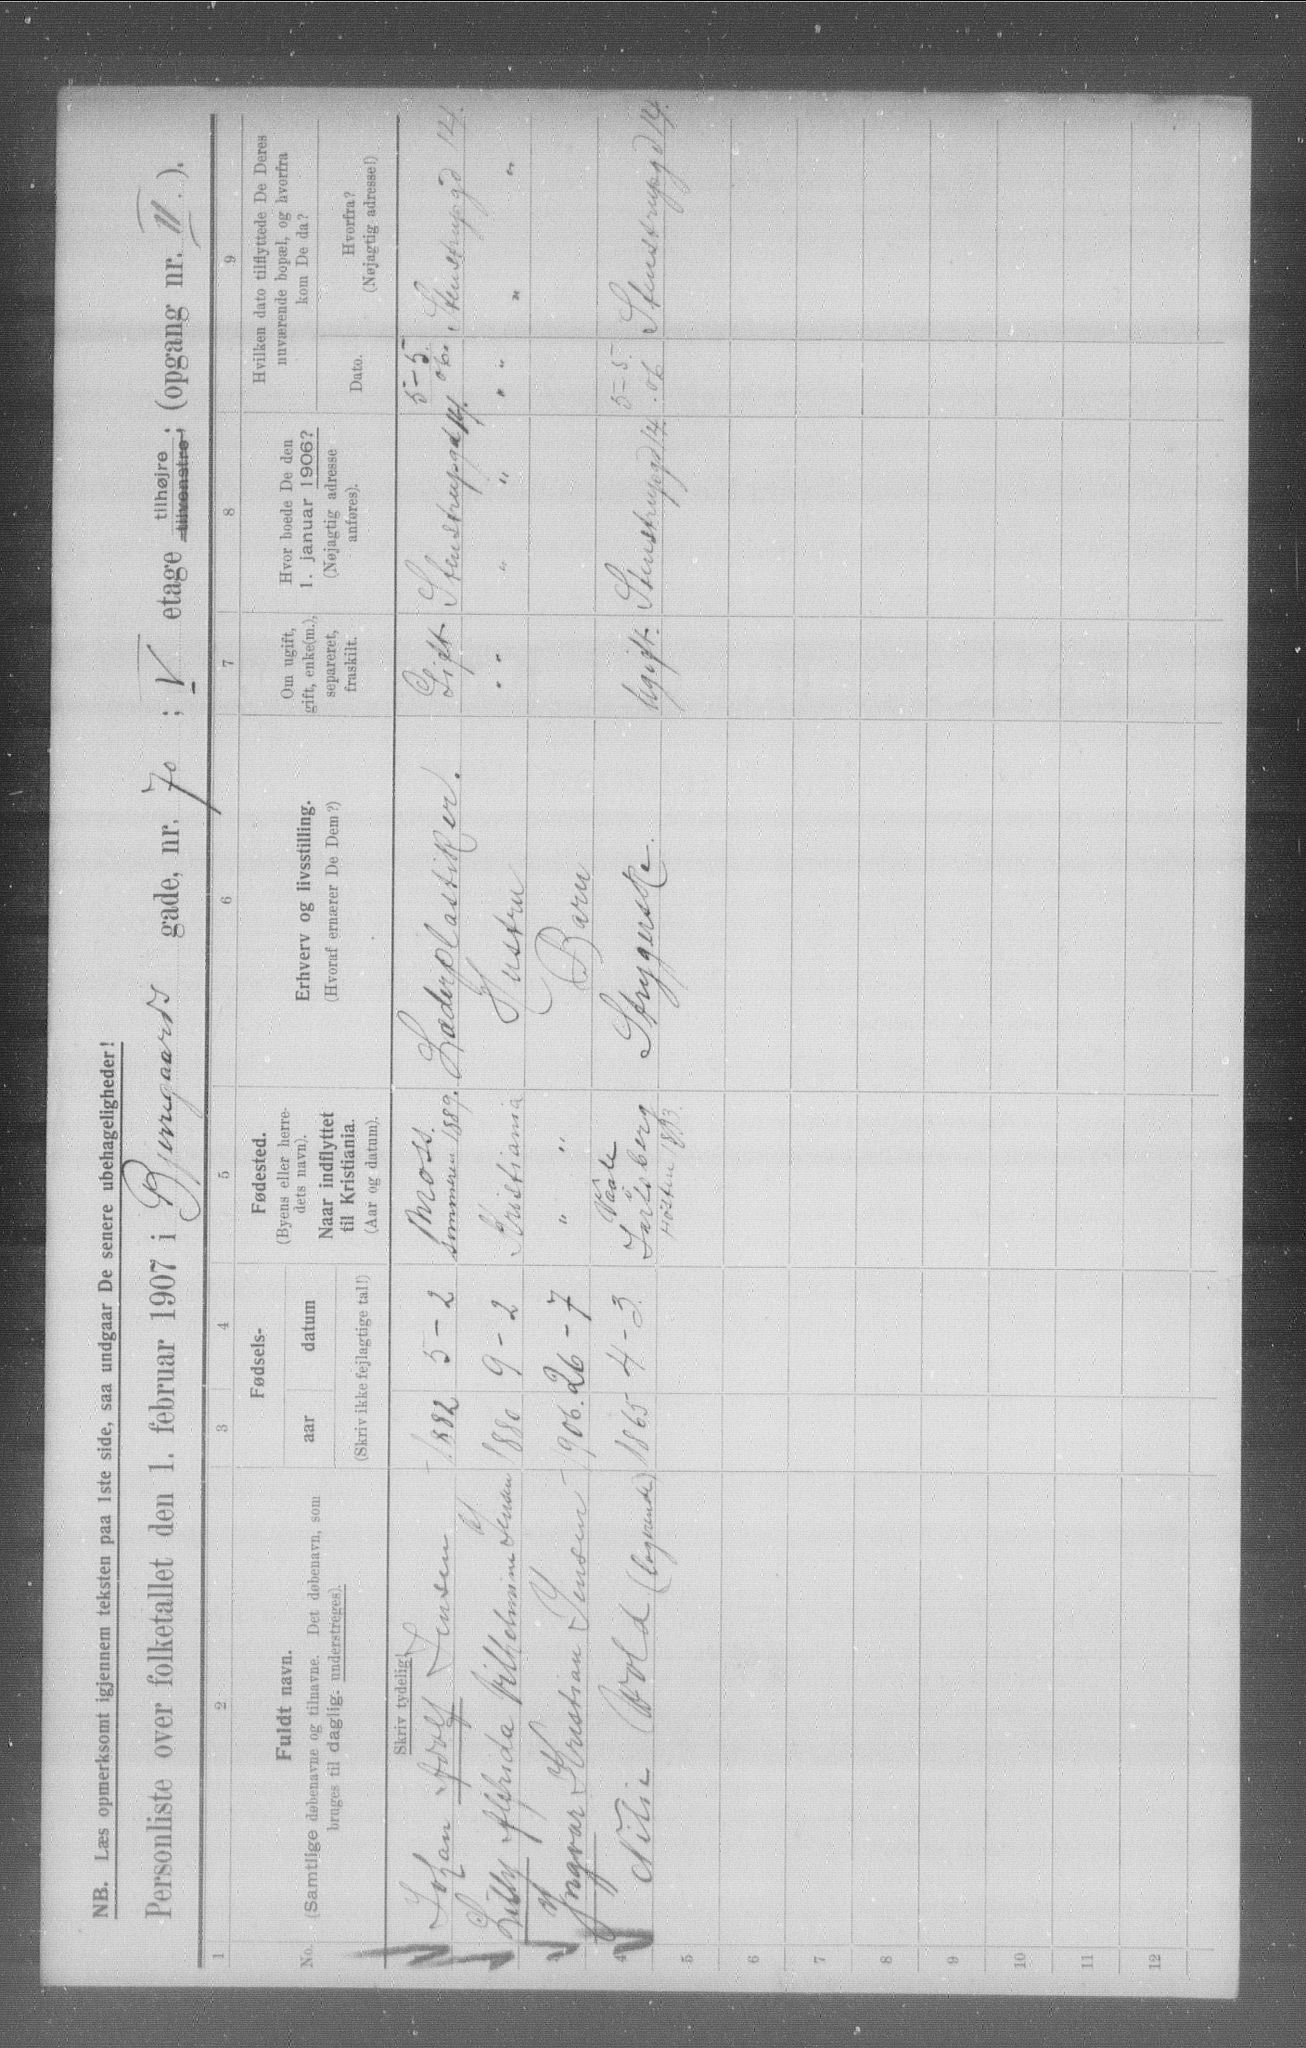 NB. Læs opmerksomt igjennem teksten paa 1ste side, saa undgaar De senere ubehageligheder!
Personliste over folketallet den 1. februar 1907 i Bjerregaards gade, nr. 70 ; V etage tilhøjre tilvenstre; (opgang nr. II. ).
1 2 3 4 5 6 7 8 9
No.
Fuldt navn.
(Samtlige døbenavne og tilnavne. Det døbenavn, som
bruges til daglig, understreges).
Skriv tydelig!
Fødsels-
aar datum
(Skriv ikke fejlagtige tal!)
Fødested.
(Byens eller herre-
dets navn).
Naar indflyttet
til Kristiania.
(Aar og datum).
Erhverv og livsstilling.
(Hvoraf ernærer De Dem?)
Om ugift,
gift, enke(m.),
separeret,
fraskilt.
Hvor boede De den
1. januar 1906?
(Nøjagtig adresse
anføres).
Hvilken dato tilflyttede De Deres
nuværende bopæl, og hvorfra
kom De da?
Dato.
Hvorfra?
(Nøjagtig adresse!)
Johan Adolf Jensen 1882 5-2 Moss. sommeren 1889. Læderplastiker. Gift Stenstrupgd 14. 5-5 06. Stenstrupgd 14.
Lilly Alfrida Vilhelmine Jensen 1880 9-2 Kristiania Hustru " " " " " " " "
3 Yngvar Kristian Jensen 1906. 26-7 " " Barn
4 Wold (logerende) 1865 4-3. Vaale Jarlsberg Høsten 1893. Strygerske. Ugift. Stenstrupgd 14. 5-5 06. Stenstrupgd 14.
5
6
7
8
9
10
11
12